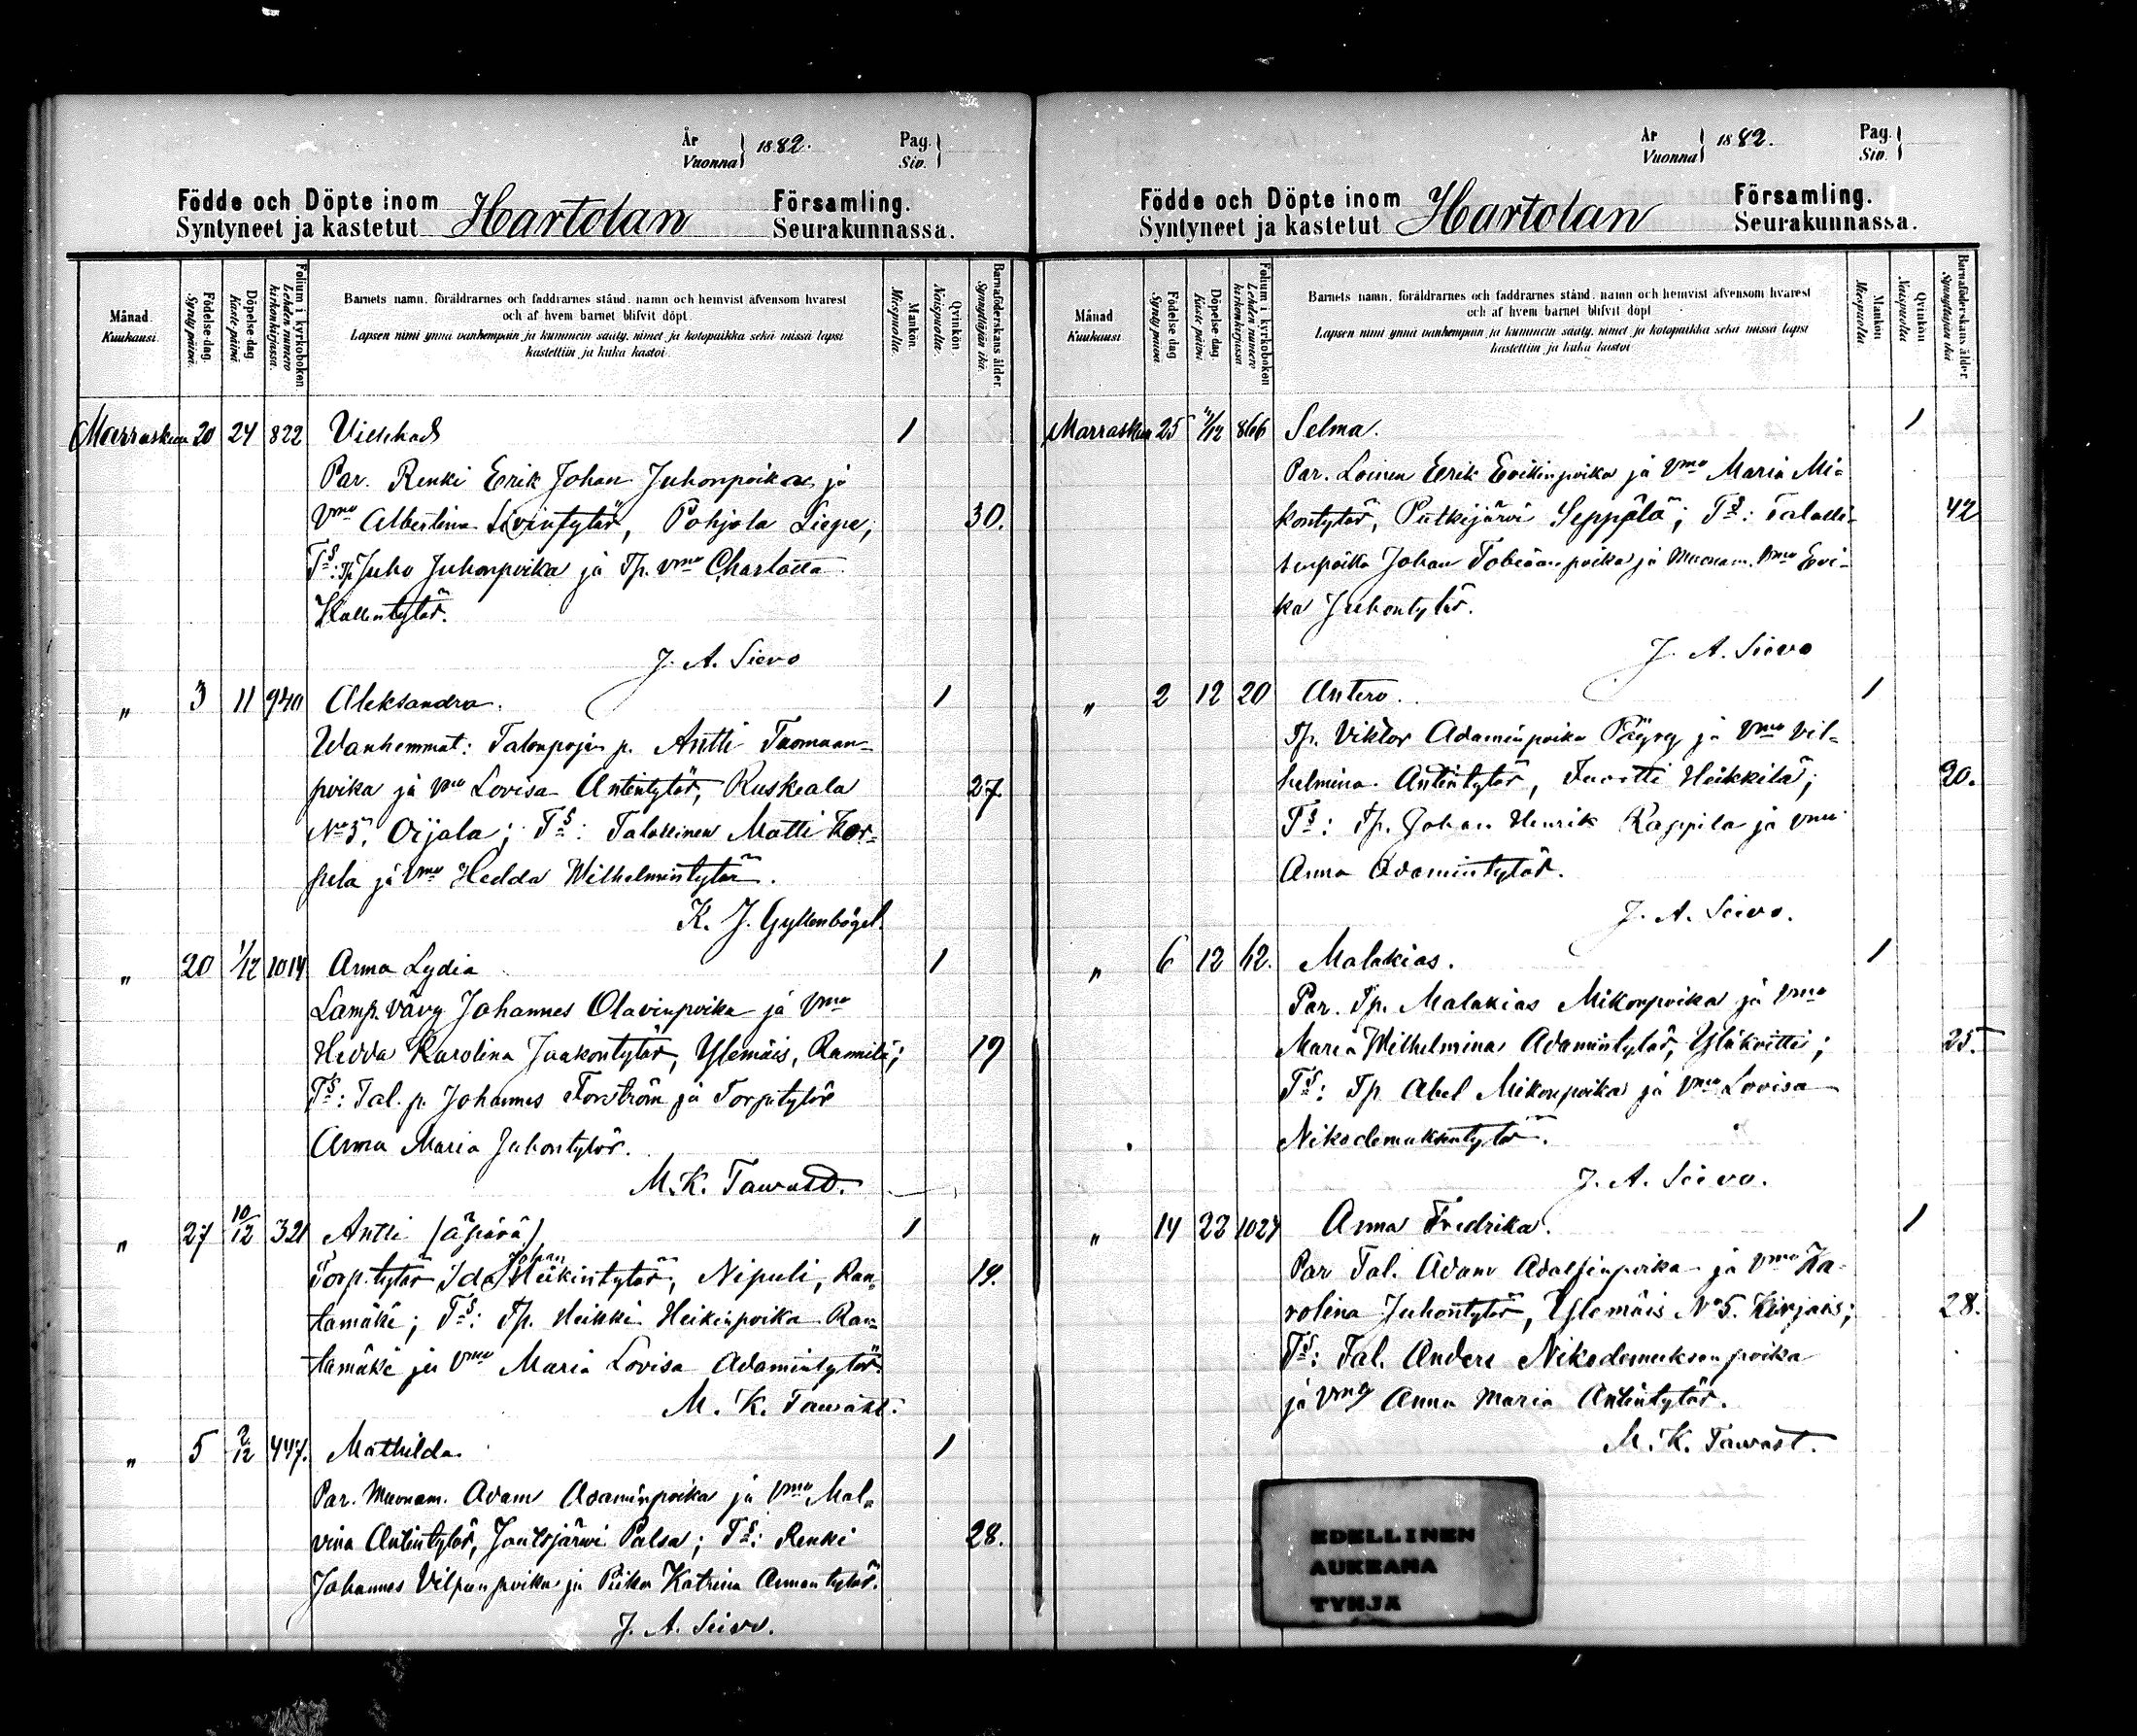 År
Vuonna } 1882.
Pag.
Siv. }
Födde och Döpte inom Hartolan Församling.
Syntyneet ja kastetut Seurakunnassa.
Månad. Kuukausi.
Födelse-dag. Synty-päivä.
Döpelse-dag. Kaste-päivä.
Folium i kyrkoboken. Lehden numero kirkonkirjassa.
Barnets namn, föräldrarnes och faddrarnes stånd, namn och hemvist äfvensom hvarest
och af hvem barnet blifvit döpt.
Lapsen nimi ynnä vanhempain ja kummein sääty, nimet ja kotopaikka sekä missä lapsi
kastettiin ja kuka kastoi.
Mankön. Miespuolia.
Qvinkön. Naispuolia.
Barnaföderskans ålder. Synnyttäjän ikä.
Marraskuu 20 24 822 1
Par. Renki Erik Johan Juhonpoika ja
Vmo Albertina, Pohjola Liepe; 30.
Ts: Tp Juho Juhonpoika ja Tp. vmo Charlotta
Kallentytär.
J. A. Sievo
" 3 11 940 Aleksandra. 1
Wanhemmat: Talonpojan p. Antti Tuomaan-
poika ja Vmo Lovisa Antintytär, Ruskeala 27.
No 5, Oijala; Ts: Talollinen Matti Kor-
pela ja Vmo Hedda Wilhelmintytär.
K. J. Gyllenbögel.
" 20 1/12 1014 Anna Lydia 1
Lamp. vävy Johannes Olavinpoika ja Vmo
Hedda Karolina Jaakontytär, Ylemäis, Rannila; 19
Ts: Tal. p. Johannes Forström ja Torpitytär
Anna Maria Juhontytär.
M. K. Tawast.
" 27 10/12 321 Antti (äpärä) 1
Torp. tytär Ida Johan Heikintytär, Nipuli, Ran- 19.
tamäki; Ts: Tp. Heikki Heikinpoika Ran-
tamäki ja Vmo Maria Lovisa Adamintytär.
M. K. Tawast.
" 5 2/12 447. Mathilda. 1
Par. Muonam. Adam Adaminpoika ja Vmo Mal-
vina Antintytär, Joutsjärvi Palsa; Ts: Renki 28.
Johannes Vilpunpoika ja Piika Katrina Annantytär.
J. A. Sievo.
År
Vuonna } 1882.
Pag.
Siv. }
Födde och Döpte inom Hartolan Församling.
Syntyneet ja kastetut Seurakunnassa.
Månad Kuukausi.
Födelse-dag Synty-päivä
Döpelse-dag. Kaste-päivä
Folium i kyrkoboken Lehden numero kirkonkirjassa
Barnets namn, föräldrarnes och faddrarnes stånd, namn och hemvist äfvensom hvarest
och af hvem barnet blifvit döpt
Lapsen nimi ynnä vanhempain ja kummein sääty, nimet ja kotopaikka sekä missä lapsi
kastettiin ja kuka kastoi
Mankön Miespuolia
Qvinkön Naispuolia
Barnaföderskans ålder Synnyttäjän ikä
Marraskuu 25 11/12 866 Selma. 1
Par. Loinen Erik Erikinpoika ja Vmo Maria Mi-
kontytär, Putkijärvi Seppälä; Ts: Talolli- 42
senpoika Johan Tobiaanpoika ja Muonam. Vmo Eri-
ka Juhontytär.
J. A. Sievo
" 2 12 20 Antero. 1
Tp. Viktor Adaminpoika Päyry ja Vmo Vil-
helmina Antintytär, Heikkilä; 20.
Ts: Tp. Johan Henrik Rappila ja Vmo
Anna Adamintytär.
J. A. Sievo.
" 6 12 62. Malakias. 1
Par. Tp. Malakias Mikonpoika ja Vmo
Maria Wilhelmina Adamintytär; 25.
Ts: Tp Abel Mikonpoika ja Vmo Lovisa
Nikodemuksentytär.
J. A. Sievo.
" 14 22 1027 Anna Fredrika. 1
Par Tal. Adam Adolfinpoika ja Vmo Ka-
rolina Juhontytär, Ylemäis No 5. Kirjais; 28.
Ts: Tal. Anders Nikodemuksenpoika
ja Vmo Anna Maria Antintytär.
M. K. Tawast.
EDELLINEN
AUKEAMA
TYHJÄ